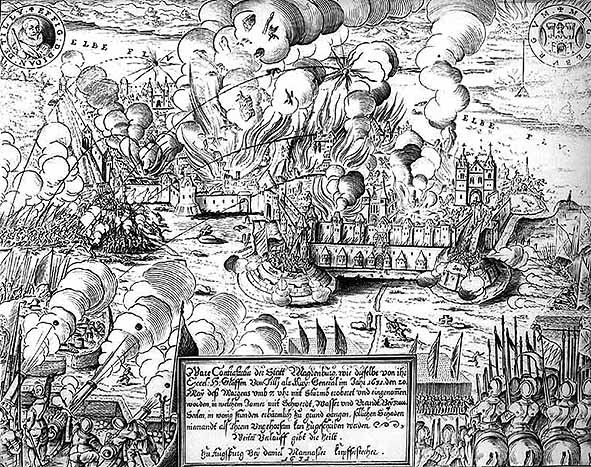 ELBE FLV
MAGDEBVRG
ELBE FLV
Ware Contrafactur der Statt Magdenburg, wie dieselbe von ihr
Excel: H: Graffen Von Tilli als Kay: General im Jahr 1631. den 20.
May deß Morgens umb 7. Uhr mit Sturmb erobert und eingenomen
worden, in welchem Jamer mit Schwerdt, Wasser und Brandt
Seelen, in wenig stunden erbärmlich zu grund gangen, solchen Schaden
niemandt als Ihrem Ungehorsam
gibt die Zeitt
Zu Augspurg Bey Daniel Mannasser Kupfferstecher.
1631